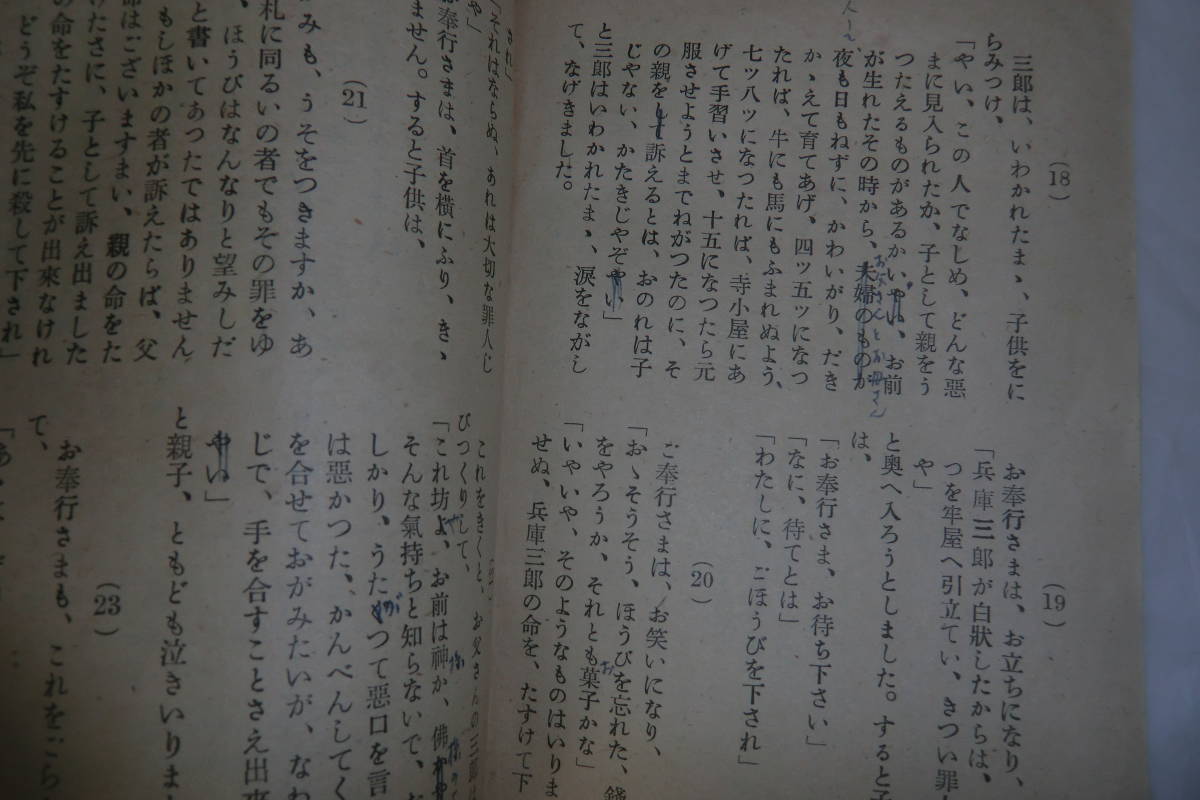 (18)
三郎は、いわかれたまゝ、子供をに
らみつけ、
「やい、この人でなしめ、どんな惡
まに見入られたか、子として親をう
つたえるものがあるかいやい、お前
が生れたその時から、夫婦のものが
お父さんとお母さん
夜も日もねずに、かわいがり、だき
かゝえて育てあげ、四ッ五ッになつ
たれば、牛にも馬にもふまれぬよう、
七ッ八ッになつたれば、寺小屋にあ
げて手習いさせ、十五になつたら元
服させようとまでねがつたのに、そ
の親をして訴えるとは、おのれは子
じやない、かたきじやぞやい」
と三郎はいわかれたまゝ、涙をながし
て、なげきました。
(19)
お奉行さまは、お立ちになり、
「兵庫三郎が白狀したからは、
つを牢屋へ引立てい、きつい罪
や」
と奥へ入ろうとしました。すると子
は、
「お奉行さま、お待ち下さい」
「なに、待てとは」
「わたしに、ごほうびを下され」
(20)
ご奉行さまは、お笑いになり、
「おゝそうそう、ほうびを忘れた、錢
をやろうか、それとも菓子かな」
お
「いやいや、そのようなものはいりま
せぬ、兵庫三郎の命を、たすけて下
され」
「それはならぬ、あれは大切な罪人じ
や」
お奉行さまは、首を横にふり、きゝ
ません。すると子供は、
(21)
かみも、うそをつきますか、あ
札に同るいの者でもその罪をゆ
、ほうびはなんなりと望みしだ
と書いてあつたではありません
もしほかの者が訴えたらば、父
命はございますまい、親の命をた
けたさに、子として訴え出ました
の命をたすけることが出来なけれ
どうぞ私を先に殺して下され」
これをきくと、お父さんの三郎は
びつくりして、
「これ坊よ、お前は神か、佛か
や
様
様の
そんな氣持ちと知らないで、
しかり、うたがつて惡口を言
は惡かつた、かんべんしてく
を合せておがみたいが、なわ
じで、手を合すことさえ出來
やい」
と親子、ともども泣きいりま
(23)
お奉行さまも、これをごら
て、